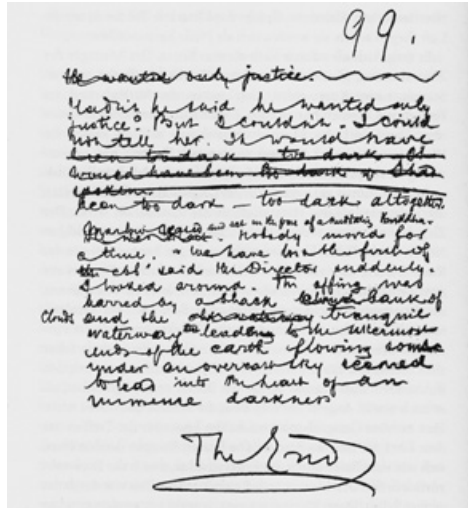 99.
he wanted only justice.
"Hadn't he said he wanted only
justice? But I couldn't. I could
not tell her. It would have
been too dark too dark
would have been too dark
been too dark – too dark altogether.
Marlow ceased and sat in the pose of a meditating Buddha.
Nobody moved for
a time. "We have lost the first of
the ebb" said the Director suddenly.
I looked around. The offing was
barred by a black bank of
clouds and the tranquil
waterway leading to the uttermost
ends of the earth flowing sombre
under an overcast sky seemed
to lead into the heart of an
immense darkness
The End